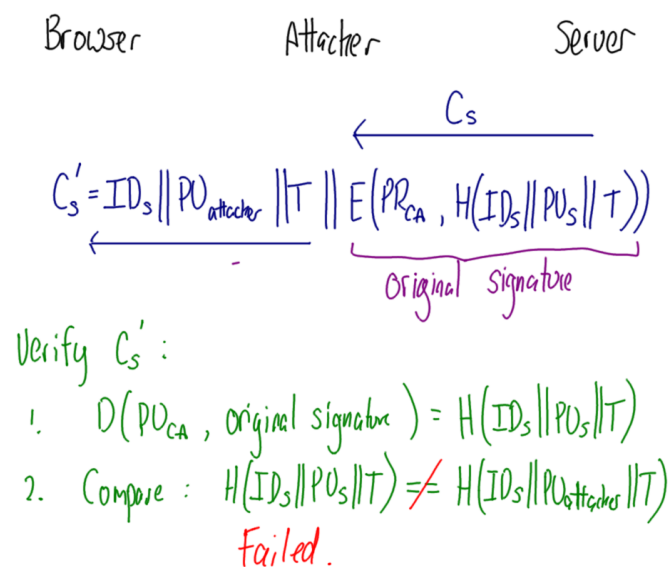 Browser Attacker Server
Cs
Cs' = IDs || PUattacker || T || E(PRCA, H(IDs || PUs || T))
original signature
Verify Cs' :
1. D(PUCA, original signature) = H(IDs || PUs || T)
2. Compare : H(IDs || PUs || T) ≠= H(IDs || PUattacker || T)
Failed.